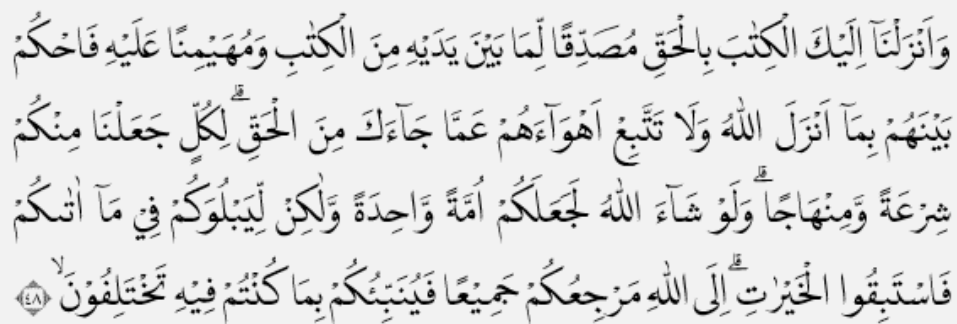 وَاَنْزَلْنَآ اِلَيْكَ الْكِتٰبَ بِالْحَقِّ مُصَدِّقًا لِّمَا بَيْنَ يَدَيْهِ مِنَ الْكِتٰبِ وَمُهَيْمِنًا عَلَيْهِ فَاحْكُمْ
بَيْنَهُمْ بِمَآ اَنْزَلَ اللّٰهُ وَلَا تَتَّبِعْ اَهْوَاۤءَهُمْ عَمَّا جَاۤءَكَ مِنَ الْحَقِّۗ لِكُلٍّ جَعَلْنَا مِنْكُمْ
شِرْعَةً وَّمِنْهَاجًاۗ وَلَوْ شَاۤءَ اللّٰهُ لَجَعَلَكُمْ اُمَّةً وَّاحِدَةً وَّلٰكِنْ لِّيَبْلُوَكُمْ فِيْ مَآ اٰتٰىكُمْ
فَاسْتَبِقُوا الْخَيْرٰتِۗ اِلَى اللّٰهِ مَرْجِعُكُمْ جَمِيْعًا فَيُنَبِّئُكُمْ بِمَا كُنْتُمْ فِيْهِ تَخْتَلِفُوْنَۙ ٤٨